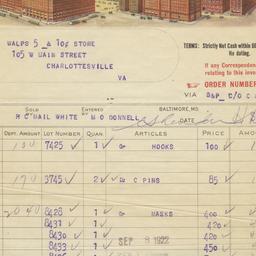 WALPS 5 & 10¢ STORE
105 W MAIN STREET
CHARLOTTESVILLE
VA
TERMS: Strictly Net Cash within 60
No dating.
If any Correspondence
relating to this invo
ORDER NUMBER
VIA B&P C/O C &
SOLD ENTERED BALTIMORE, MD.
R C MAIL WHITE BY M O DONNELL DATE
DEPT. AMOUNT LOT NUMBER QUAN. ARTICLES PRICE AMO
7425 1 Gr HOOKS 100
3745 2 Gr C PINS 85
8428 1 Gr MASKS 400
8431 1 420
8430 1 420
8433 1 450
SEP 8 1922